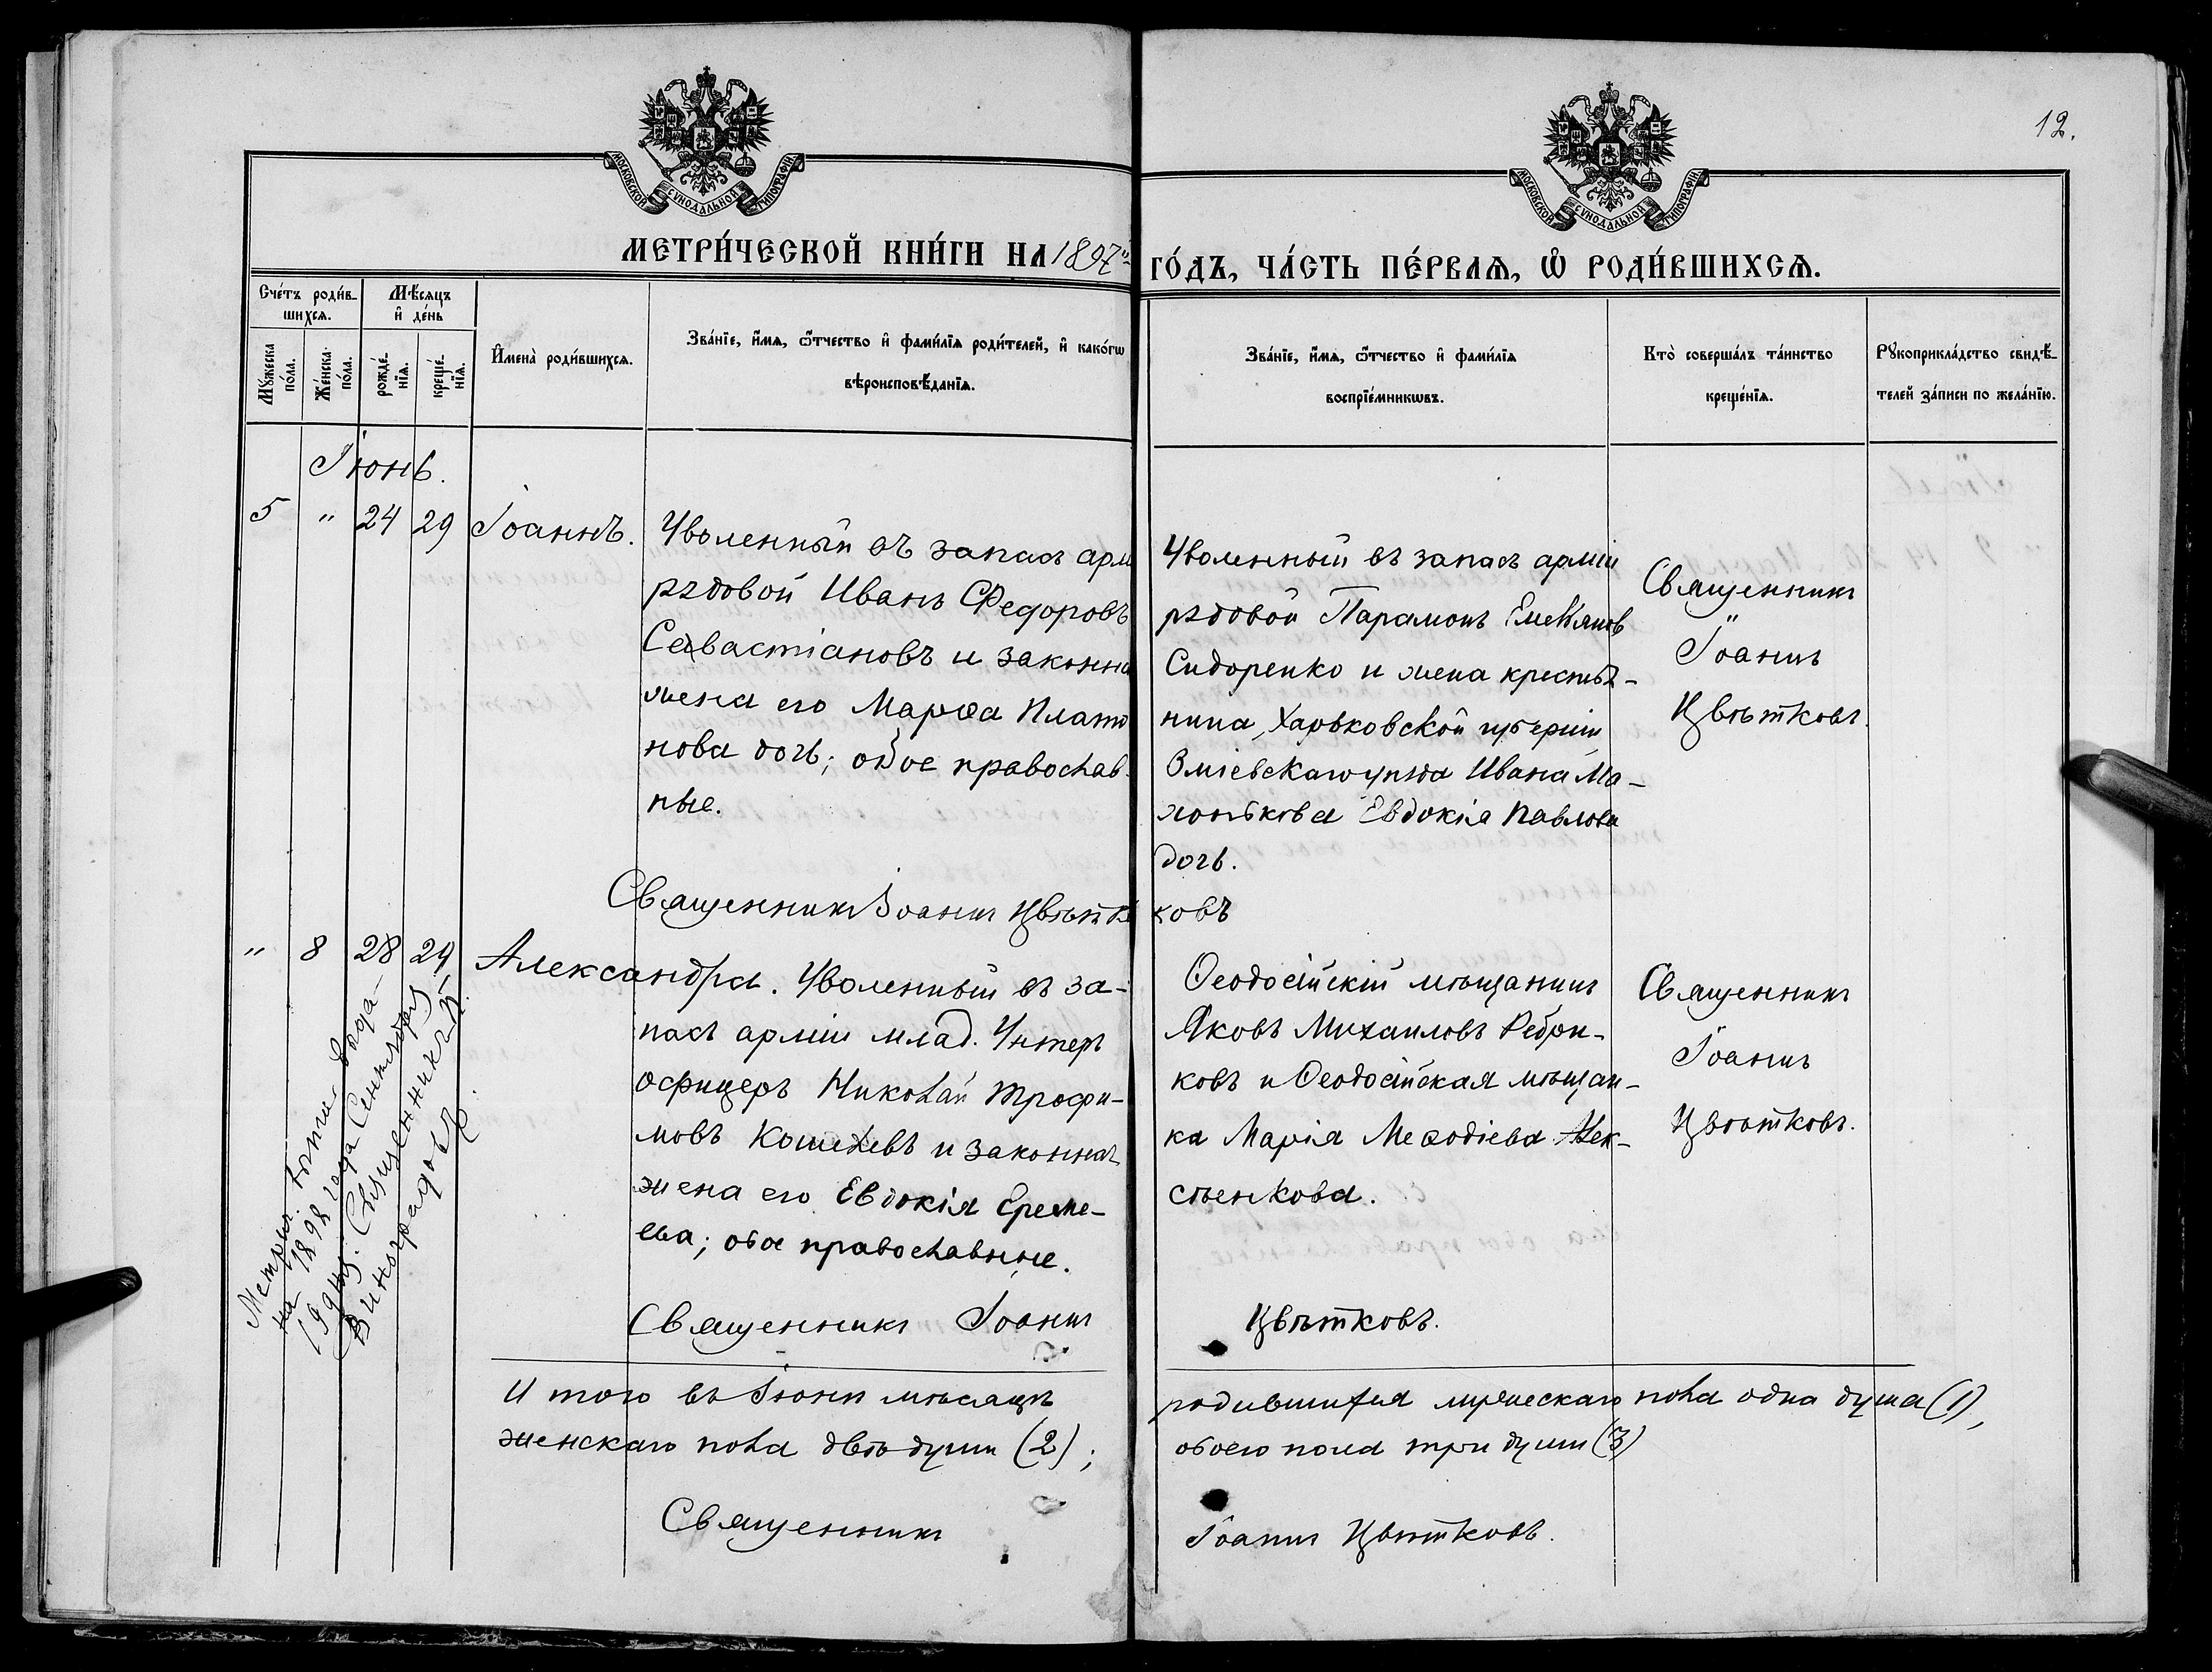 12.
МОСКОВСКОЙ СѴНОДАЛЬНОЙ ТИПОГРАФІИ
МОСКОВСКОЙ СѴНОДАЛЬНОЙ ТИПОГРАФІИ
МЕТРИ́ЧЕСКОЙ КНИ́ГИ НА 1897й
ГО́ДЪ, ЧА́СТЬ ПЕ́РВАѦ, Ѽ РОДИ́ВШИХСѦ.
Сче́тъ роди́в-
шихсѧ.
Мѣ́сѧцъ
и҆ де́нь
Мꙋ́жеска
по́ла.
Же́нска
по́ла.
рожде́-
нїѧ.
креще́-
нїѧ.
И҆мена̀ роди́вшихсѧ.
Зва́нїе, и҆́мѧ, ѻ҆́тчество и҆ фами́лїѧ роди́телей, и҆ како́гѡ
вѣроисповѣ́данїѧ.
Зва́нїе, и҆́мѧ, ѻ҆́тчество и҆ фами́лїѧ
воспрїе́мникѡвъ.
Кто̀ соверша́лъ та́инство
креще́нїѧ.
Рꙋкоприкла́дство свидѣ́-
телей за́писи по жела́нїю.
Іюнь.
5 " 24 29 Іоаннъ.
Уволенный въ запасъ арм
рядовой Иванъ Федоровъ
Севастіановъ и законна
жена его Марѳа Плато
нова дочь; обое православ-
ные.
Уволенный въ запасъ арміи
рядовой Парамонъ Емельянов
Сидоренко и жена крестья-
нина, Харьковской губерніи,
Зміевскаго уѣзда Ивана Ма-
хонькова Евдокія Павлова
дочь.
Священникъ
Іоаннъ
Цвѣтковъ.
Священникъ Іоаннъ Цвѣтк
ковъ
" 8 28 29 Александра.
Уволенный въ за-
пасъ арміи млад. Унтеръ
офицеръ Николай Трофи-
мовъ Кошелевъ и законная
жена его Евдокія Ереме-
ева; обое православные.
Ѳеодосійскій мѣщанинъ
Яковъ Михаиловъ Ребри-
ковъ и Ѳеодосійская мѣщан-
ка Марія Меѳодіева Алек-
сѣенкова.
Священникъ
Іоаннъ
Цвѣтковъ.
Метрич. выпись выда-
на 1898 года Сентября
19 дня. Священникъ В.
Виноградовъ.
Священникъ Іоаннъ
Цвѣтковъ.
И того въ Іюнѣ мѣсяцѣ
родившихся мужескаго пола одна душа (1),
женскаго пола двѣ души (2);
обоего пола три души (3)
Священникъ
Іоаннъ Цвѣтковъ.